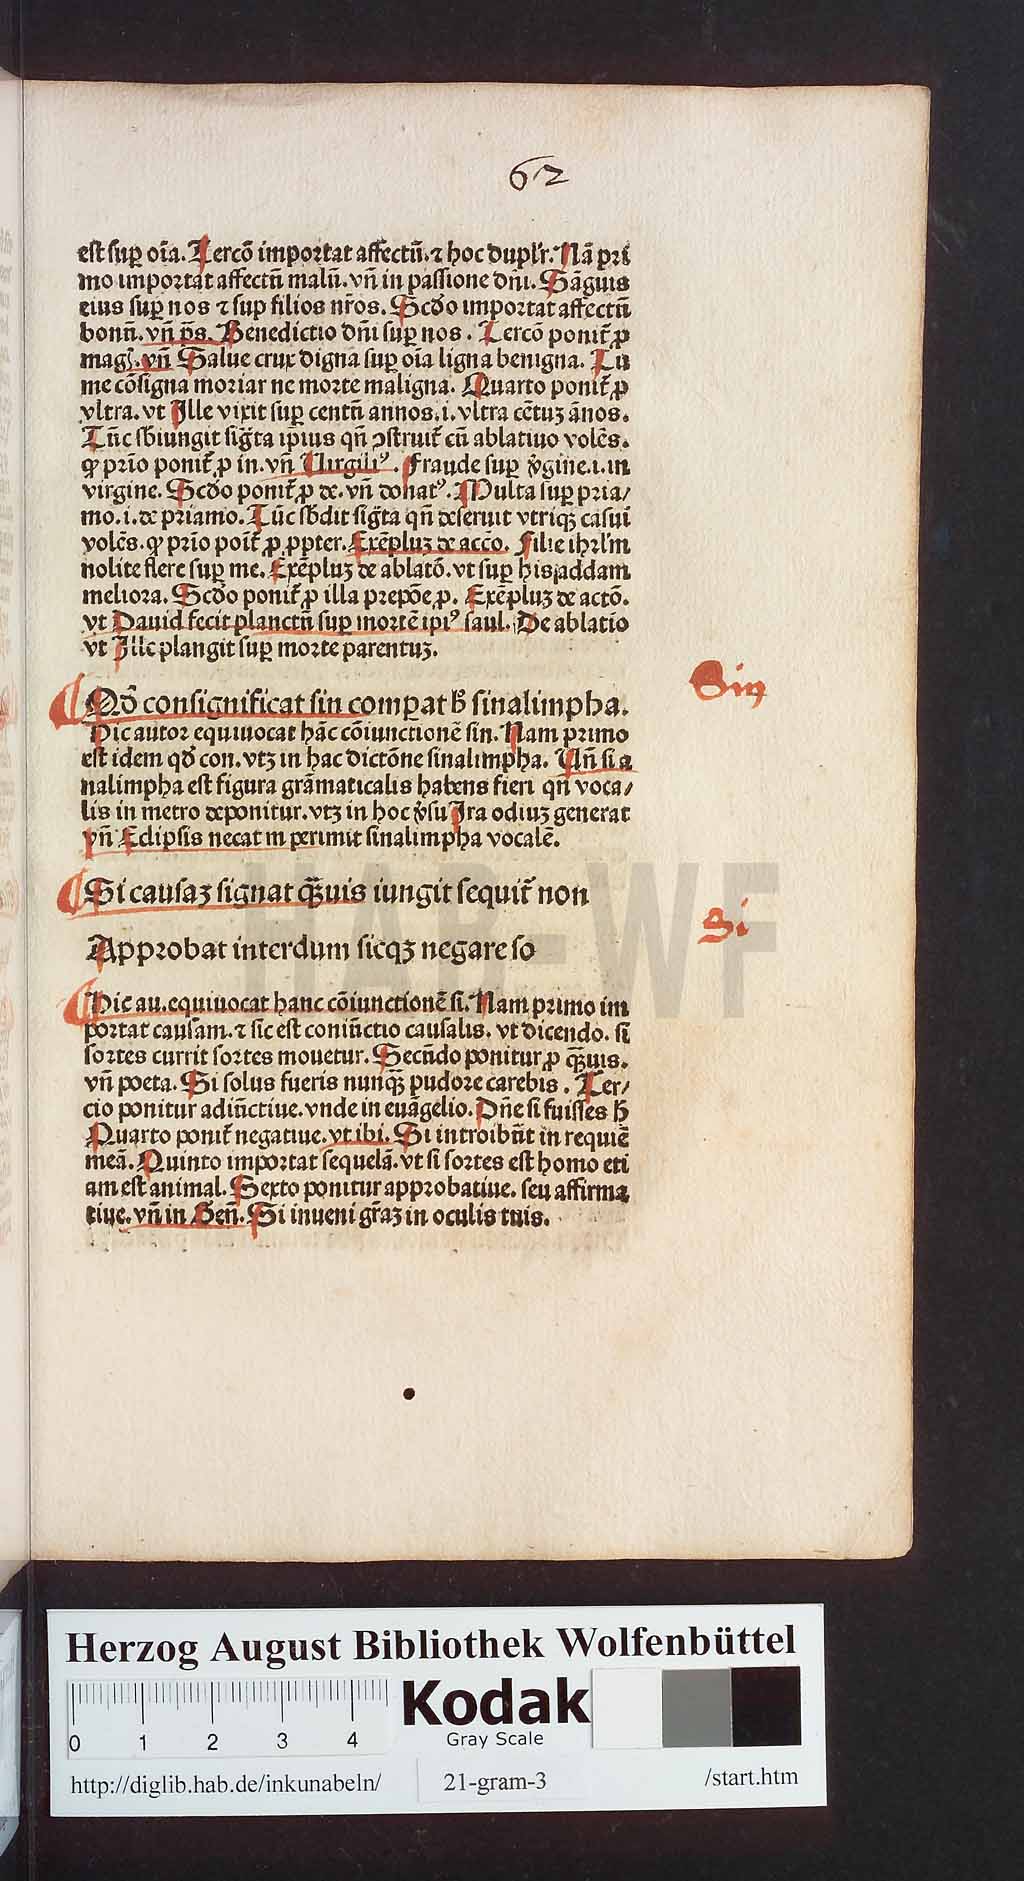 62
est sup̱ oı̄a. Tercō importat affectū. ⁊ hoc dupl'r. Nā pri
mo importat affectū malū. vn̄ in passione dn̄i. Sāguis
eius sup̱ nos ⁊ sup filios nr̄os. Scd̄o importat affectū
bonū. vn̄ p̄s. Benedictio dn̄i sup̱ nos. Tercō ponit̄ ꝓ
mag. vn̄ Salue crux digna sup̱ oı̄a ligna benigna. Tu
me cōsigna moriar ne morte maligna. Quarto ponit̄ ꝓ
vltra. vt Ille vixit sup̱ centū annos .i. vltra cētuȝ ānos.
Tūc sb̄iungit siḡta ip̄ius qn̄ ꝯstruit̄ cū ablatiuo volēs.
ꝙ prı̄o ponit̄ ꝓ in. vn̄ Virgiliꝰ. Fraude sup̱ v̄gine .i. in
virgine. Scd̄o ponit̄ ꝓ de. vn̄ donatꝰ. Multa sup̱ pria/
mo .i. de priamo. Tūc sb̄dit siḡta qn̄ deseruit vtriqȝ casui
volēs. ꝙ prı̄o poit̄ ꝓ ꝓpter. Exēpluȝ de accō. Filie ihrl'm
nolite flere sup̱ me. Exēpluȝ de ablatō. vt sup̱ his addam
meliora. Scd̄o ponit̄ ꝓ illa prepōe ꝓ. Exēpluȝ de actō.
vt Dauid fecit planctū sup̱ mortē ipiꝰ saul. De ablatio
vt Ille plangit sup̱ morte parentuȝ.
Sin
Qd̄ consignificat sin comparat hꝫ sinalimpha.
Hic autor equiuocat hāc cōiunctionē sin. Nam primo
est idem qd̄ con. vtȝ in hac dictōne sinalimpha. Vn̄ si a
nalimpha est figura grāmaticalis habens fieri qn̄ voca/
lis in metro deponitur. vtȝ in hoc v̄su Ira odiuȝ generat
vn̄ Eclipsis necat m perimit sinalimpha vocalē.
Si causaȝ signat qȝ̄uis iungit sequit̄ non
Si
Approbat interdum sicqȝ negare so
Hic au. equiuocat hanc cōiunctionē si. Nam primo im
portat causam. ⁊ sic est coniūctio causalis. vt dicendo. si
sortes currit sortes mouetur. Secūdo ponitur ꝓ qȝ̄uis.
vn̄ poeta. Si solus fueris nunqȝ̄ pudore carebis. Ter/
cio ponitur adiūctiue. vnde in euāgelio. Dn̄e si fuisses h̄
Quarto ponit̄ negatiue. vt ibi. Si introibūt in requiē
meā. Quinto importat sequelā. vt si sortes est homo eti
am est animal. Sexto ponitur approbatiue. seu affirma
tiue. vn̄ in Gen̄. Si inueni gr̄aȝ in oculis tuis.
HAB-WF
Herzog August Bibliothek Wolfenbüttel
0 1 2 3 4
Kodak
Gray Scale
http://diglib.hab.de/inkunabeln/ 21-gram-3 /start.htm